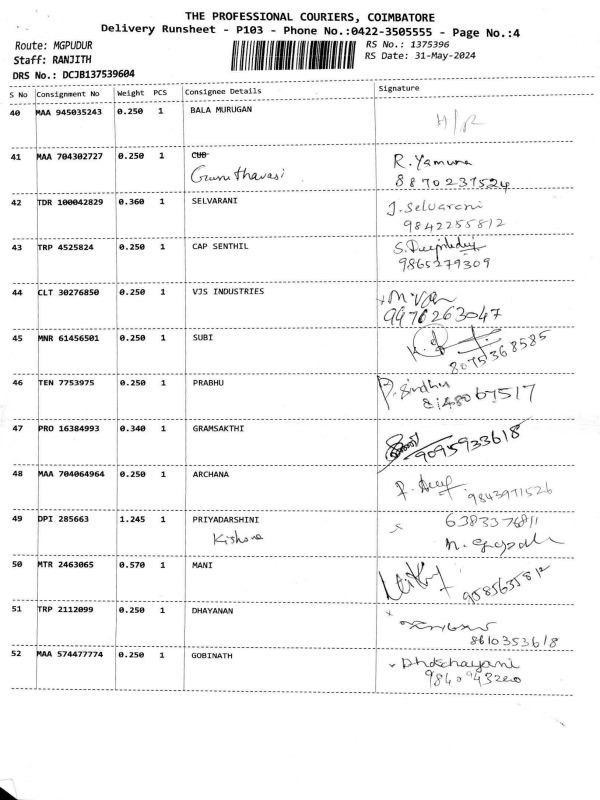 THE PROFESSIONAL COURIERS, COIMBATORE
Delivery Runsheet - P103 - Phone No.:0422-3505555 - Page No.:4
Route: MGPUDUR
RS No.: 1375396
Staff: RANJITH
RS Date: 31-May-2024
DRS No.: DCJB137539604
S No Consignment No Weight PCS Consignee Details Signature
40 MAA 945035243 0.250 1 BALA MURUGAN
41 MAA 704302727 0.250 1 CUB R. Yamuna
8870237524
42 TDR 100042829 0.360 1 SELVARANI J. Selvarani
9842255812
43 TRP 4525824 0.250 1 CAP SENTHIL
9865279309
44 CLT 30276850 0.250 1 VJS INDUSTRIES
45 MNR 61456501 0.250 1 SUBI
8075368585
46 TEN 7753975 0.250 1 PRABHU P. Sindhu
47 PRO 16384993 0.340 1 GRAMSAKTHI
9095933618
48 MAA 704064964 0.250 1 ARCHANA
9843971526
49 DPI 285663 1.245 1 PRIYADARSHINI
Kishore
50 MTR 2463065 0.570 1 MANI
9585635812
51 TRP 2112099 0.250 1 DHAYANAN
8610353618
52 MAA 574477774 0.250 1 GOBINATH Dhakchayani